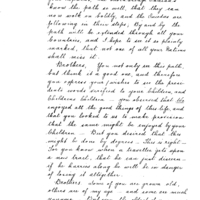 know the path so well, that they can
now walk in safely, and the Guides are
following in their steps; By and by the
path will be extended through all your
Countries, and I hope to see it so plainly
marked, that not one of all your Nations
shall miss it.
Brothers, You not only see this path,
but think it a good one, and therefore
you express your wishes to see the presi-
dents words verified to your Children and
Childrens Children – you observed that He
enjoyed all the good things of this life, and
that you looked to us to make provision
that the same might be enjoyed by your
Children – But you desired that this
might be done by degrees. This is right –
You you know when a traveller falls upon
a new tract, that he can just discern –
if he hurries along he will be in danger
of losing it altogether.
Brothers Some of you are grown old,
others are of my age and some are much